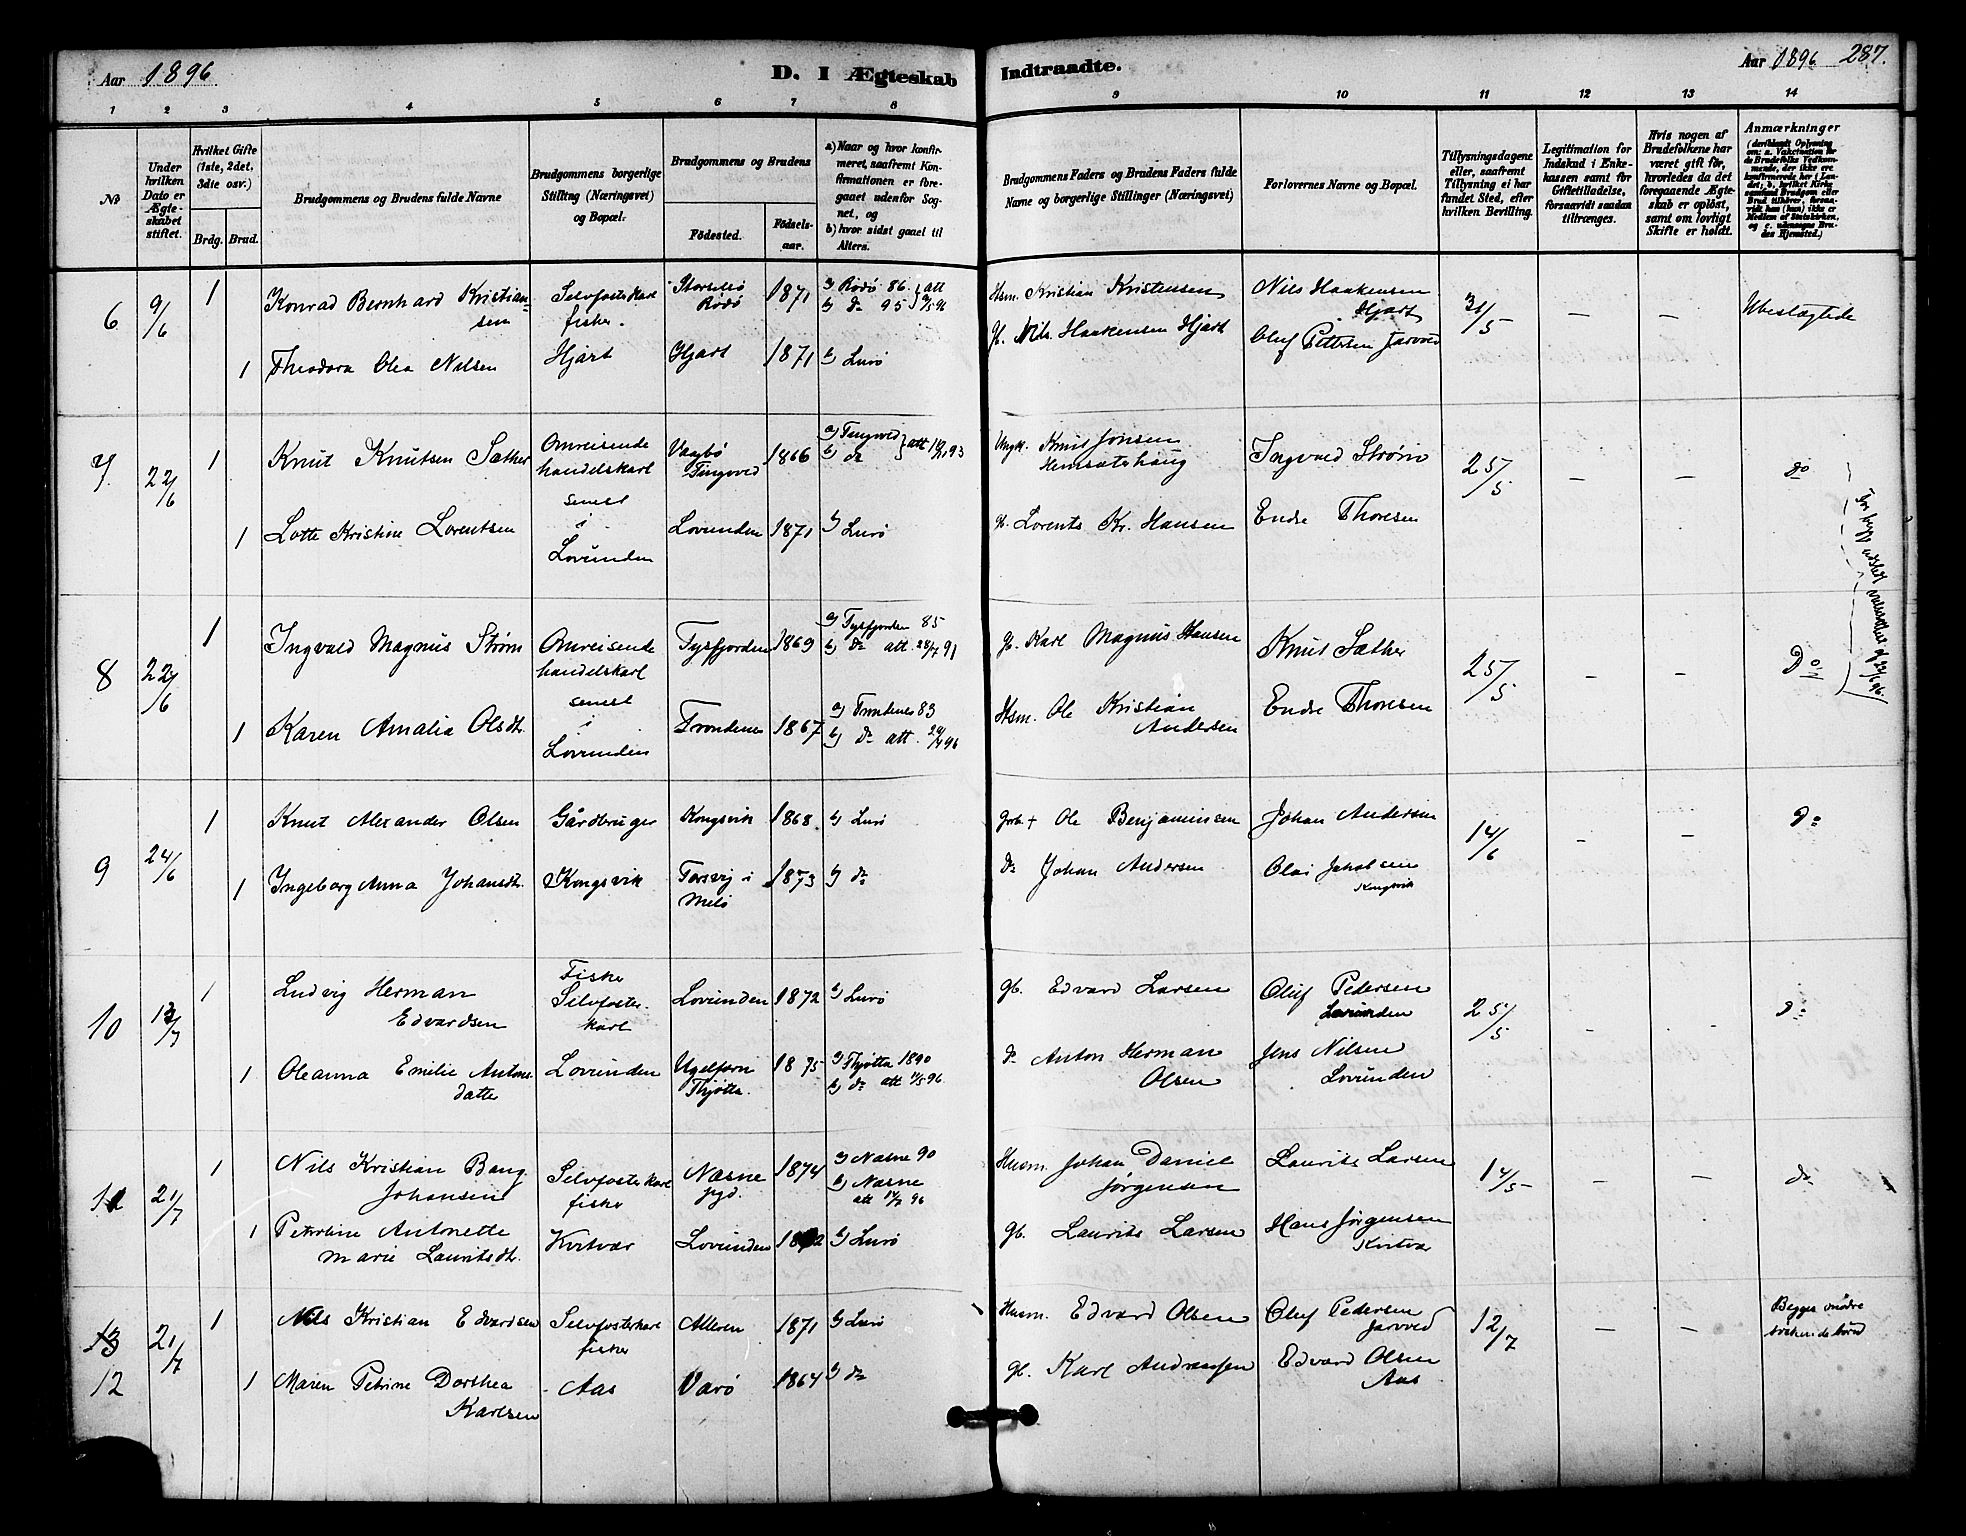 Aar 1896
D. I Ægteskab
Indtraadte.
Aar 1896 287.
1 2 3 4 5 6 7 8 9 10 11 12 13 14
No
Under hvilken Dato er Ægteskabet stiftet.
Hvilket Gifte (1ste, 2det, 3die osv.)
Brdg. Brud.
Brudgommens og Brudens fulde Navne
Brudgommens borgerlige Stilling (Næringsvei) og Bopæl.
Brudgommens og Brudens
Födested. Födselsaar.
a) Naar og hvor konfirmeret, saafremt Konfirmationen er foregaaet udenfor Sognet, og
b) hvor sidst gaaet til Alters.
Brudgommens Faders og Brudens Faders fulde Navne og borgerlige Stillinger (Næringsvei)
Forlovernes Navne og Bopæl.
Tillysningsdagene eller, saafremt Tillysning ei har fundet Sted, efter hvilken Bevilling.
Legitimation for Indskud i Enkekassen samt for Giftetilladelse, forsaavidt saadan tiltrænges.
Hvis nogen af Brudefolkene har været gift för, hvorledes da det foregaaende Ægteskab er oplöst, samt om lovligt Skifte er holdt.
Anmærkninger
6 9/6 1 Konrad Bernhard Kristiansen Selvfosterkarl fisker. Storselsö Rödö 1871 a) Rödö 86. b) do 95 att Hsm. Kristian Kristensen Nils Haakensen Hjart 31/5 — — Ubeslægtede
1 Theodora Olea Nilsen Hjart Hjart 1871 b) Lurö G. Nils Haakensen Hjart Oluf Pettersen Jarvved
7 22/6 1 Knut Knutsen Sæther Omreisende handelskarl senest i Lovunden Vaagbö Tingvod 1866 a) Tingvod b) do att 93 Ungk. Knut Jonsen Ingvald Ström 25/5 — — do
1 Lotte Kristine Lorentsen Lovunden 1871 b) Lurö G. Lorents Kr. Hansen Endre Thoresen
8 22/6 1 Ingvald Magnus Ström Omreisende handelskarl senest i Lovunden Tysfjorden 1869 a) Tysfjorden 85 b) do att. 91 G. Karl Magnus Hansen Knut Sæther 25/5 — — Do
1 Karen Amalia Olsdt. Trondenes 1867 a) Trondenes 83 b) do att. 96 Hsm. Ole Kristian Andersen Endre Thoresen
9 24/6 1 Knut Alexander Olsen Gårdbruger Kongsvik 1868 b) Lurö Grb. + Ole Benjaminsen Johan Andersen 14/6 — — do
1 Ingeborg Anna Johansdt. Kongsvik Torsvig i Melö 1873 b) do do Johan Andersen Olai Jakobsen Kongsvik
10 13/7 1 Ludvig Herman Edvardsen Fisker Selvfosterkarl Lovunden 1872 b) Lurö Gb. Edvard Larsen Oluf Pedersen Lovunden 25/5 - - do
1 Oleanna Emilie Antonsdatter Lovunden Thjøtta. 1875 a) Thjøtta 1890 b) do att 96 do Anton Herman Olsen Jens Nilsen Lovunden
11 21/7 1 Nils Kristian Bang Johansen Selvfosterkarl fisker Næsne pgd. 1874 a) Næsne 90 b) Næsne att 96 Husm. Johan Daniel Jörgensen Laurits Larsen 14/5 — — do
1 Antonette Marie Lauritsdt. Kvitvær Lovunden b) Lurö Gb. Laurits Larsen Hans Jörgensen Kvitvær
13 12 21/7 1 Nils Kristian Edvardsen Selvfosterkarl fisker Alleren 1871 b) Lurö Husm. Edvard Olsen Oluf Pedersen Jarvved 12/7 — — Begges mödre
1 Maren Petrine Dorthea Karlsen Aas Varö 1864 b) do Gb. Karl Andreassen Edvard Olsen Aas